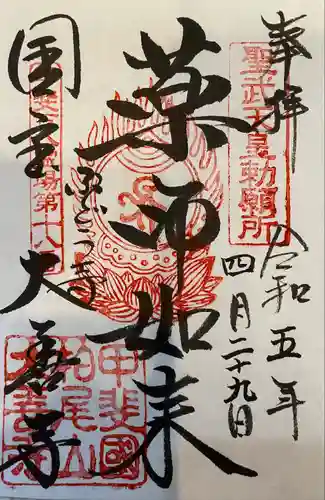 奉拝
聖武天皇勅願所
令和五年
四月二十九日
薬師如来
ぶどう寺
国宝 大善寺
場第十八
甲斐國
柏尾山
大善寺